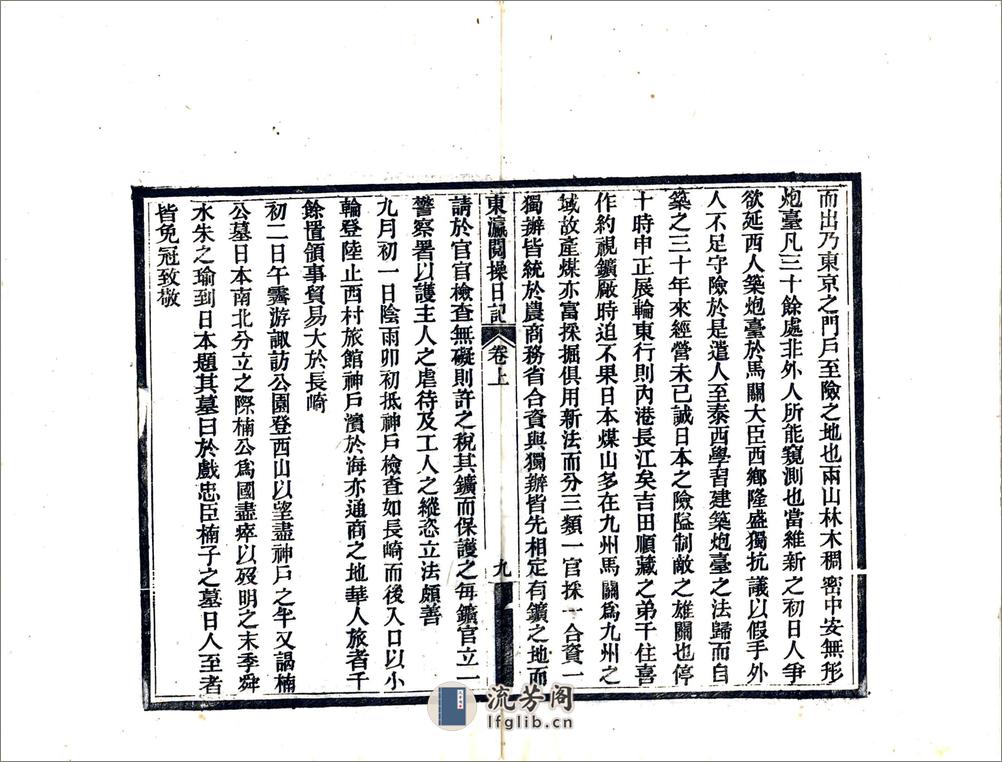 而出乃東京之門戶至險之地也兩山林木稠密中安無形
炮臺凡三十餘處非外人所能窺測也當維新之初日人爭
欲延西人築炮臺於馬關大臣西鄉隆盛獨抗議以假手外
人不足守險於是遣人至泰西學習建築炮臺之法歸而自
築之三十年來經營未已誠日本之險隘制敵之雄關也停
十時申正展輪東行則內港長江矣吉田順藏之弟千住喜
作約視鑛廠時迫不果日本煤山多在九州馬關爲九州之
域故產煤亦富採掘俱用新法而分三類一官採一合資一
獨辦皆統於農商務省合資與獨辦皆先相定有鑛之地而
東瀛閱操日記 卷上 九
請於官官檢查無礙則許之稅其鑛而保護之每鑛官立一
警察署以護主人之虐待及工人之縱恣立法頗善
九月初一日陰雨卯初抵神戶檢查如長崎而後入口以小
輪登陸止西村旅館神戶濱於海亦通商之地華人旅者千
餘置領事貿易大於長崎
初二日午霽游諏訪公園登西山以望盡神戶之半又謁楠
公墓日本南北分立之際楠公爲國盡瘁以歿明之末季舜
水朱之瑜到日本題其墓曰於戲忠臣楠子之墓日人至者
皆免冠致敬
流芳阁
lfglib.cn